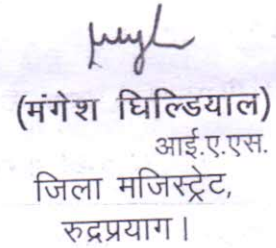 (मंगेश घिल्डियाल)
आई.ए.एस.
जिला मजिस्ट्रेट,
रुद्रप्रयाग।